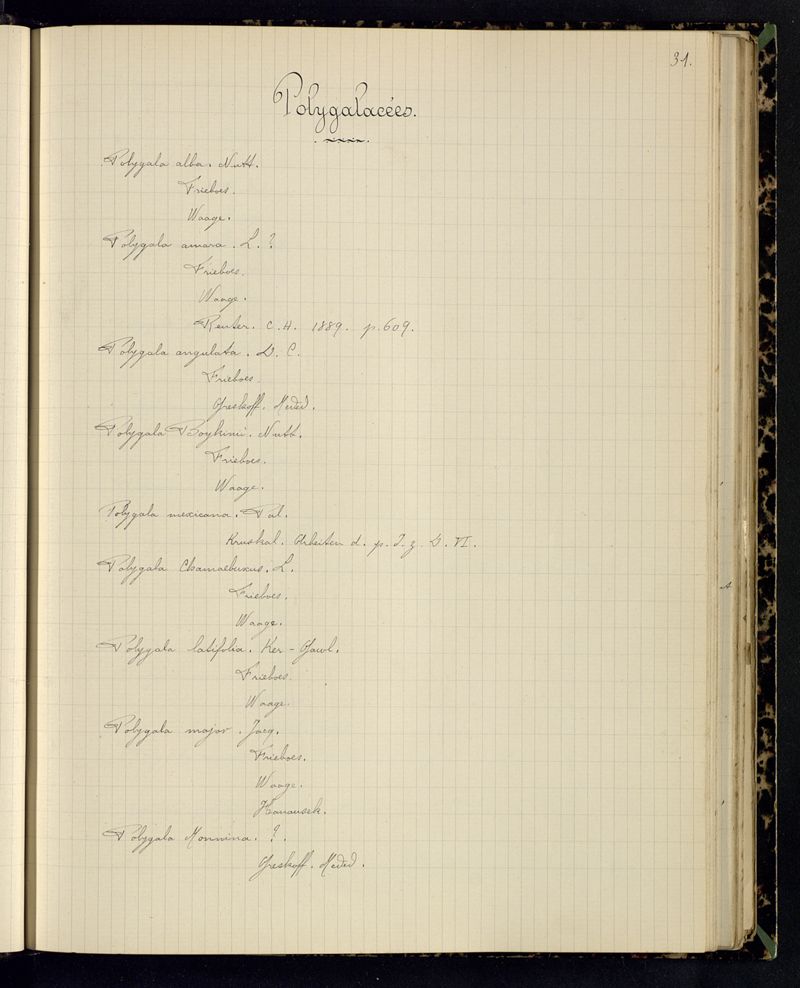 31.
Polygalacées.
Polygala alba. Nutt.
Frieboes.
Waage.
Polygala amara. L. ?
Frieboes.
Waage.
Reuter. C.H. 1889. p. 609.
Polygala angulata. D. C.
Frieboes.
Greshoff. Meded.
Polygala Boykinii. Nutt.
Frieboes.
Waage.
Polygala mexicana. Pal.
Kruskal. Arbeiten d. p. I. z. D. VI.
Polygala Chamaebuxus. L.
Frieboes.
Waage.
Polygala latifolia. Ker-Gawl.
Frieboes.
Waage.
Polygala major. Jacq.
Frieboes.
Waage.
Hanausek.
Polygala Monnina. ?.
Greshoff. Meded.